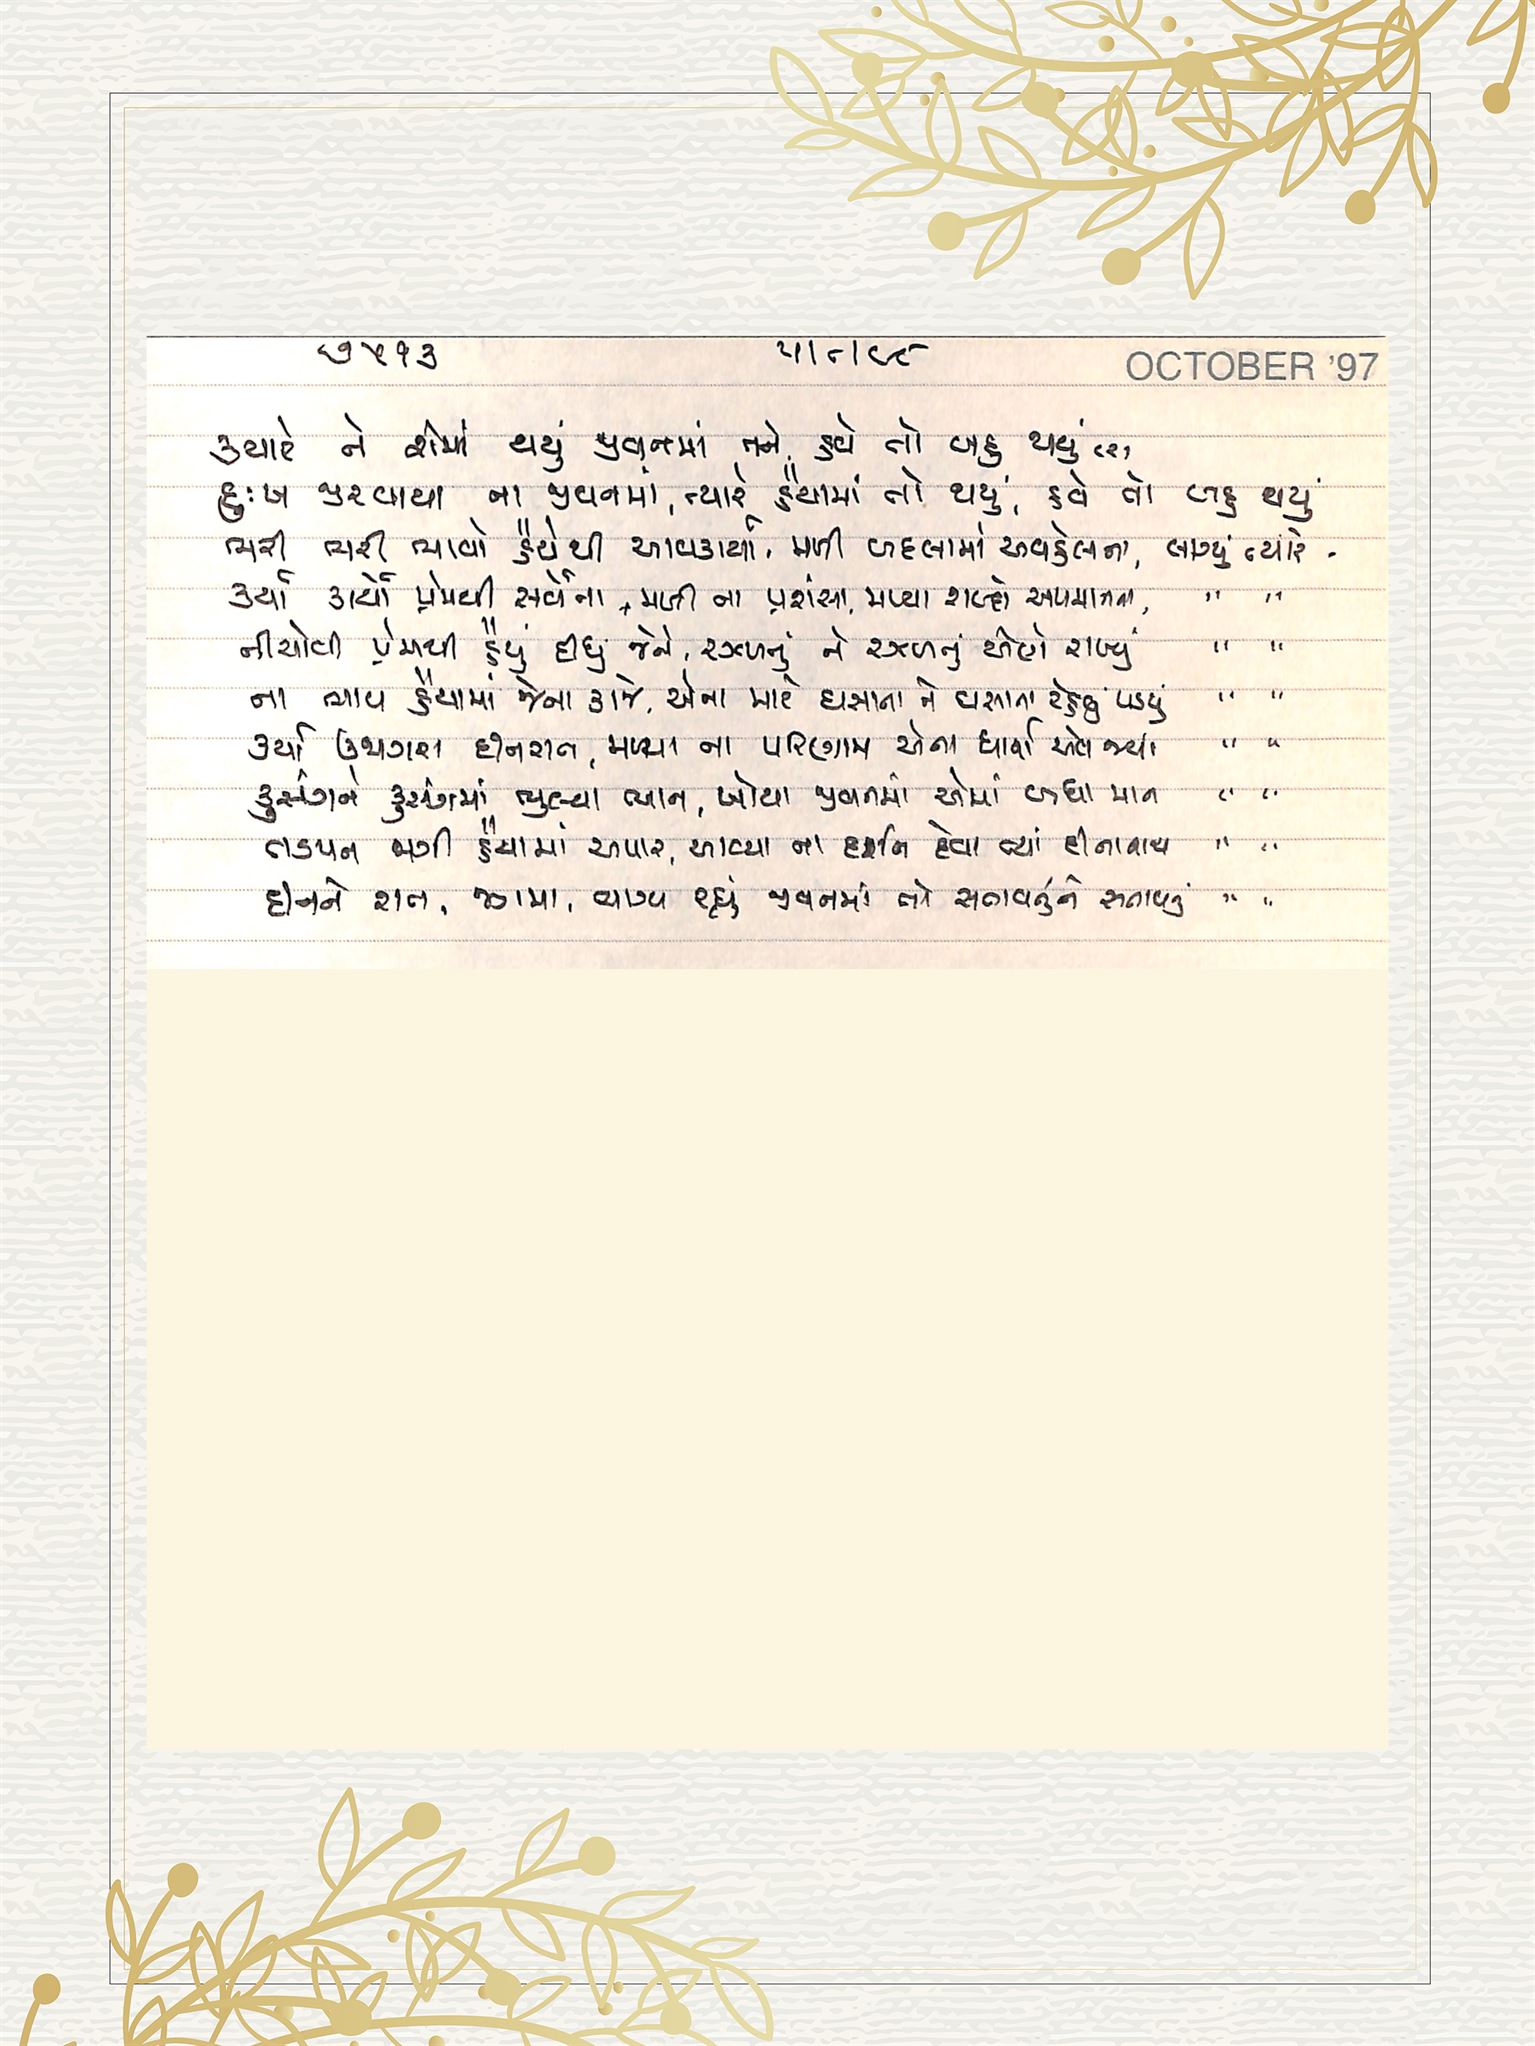 ૭૫૧૩ ૫/૮/૯૮ OCTOBER '97
ક્યારે ને શેમાં થયું જીવનમાં તને, હવે તો બહુ થયું (૨)
દુઃખ જીરવાયા ના જીવનમાં, ત્યારે હૈયામાં તો થયું, હવે તો બહુ થયું
ભરી ભરી ભાવો હૈયેથી આવકાર્યા, મળી બદલામાં અવહેલના, લાગ્યું ત્યારે.
કર્યા કાર્યો પ્રેમથી સર્વેના, મળી ના પ્રશંસા, મળ્યા શબ્દો અપમાનના, " "
નીચોવી પ્રેમથી હૈયું દીધું જેને, રઝળતું ને રઝળતું એણે રાખ્યું " "
ના ભાવ હૈયામાં જેના કાજે, એના માટે ઘસાતા ને ઘસાતા રહેવું પડયું " "
કર્યા ઉજાગરા દીનરાત, મળ્યા ના પરિણામ એના ધાર્યા એવા જ્યાં " "
કુસંગને કુસંગમાં ભુલ્યા ભાન, ખોયા જીવનમાં એમાં બધા માન " "
તડપન જાગી હૈયામાં અપાર, આવ્યા ના દર્શન દેવા ત્યાં દીનાનાથ " "
દીનને રાત, જાગ્યા, ભાગ્ય રહ્યું જીવનમાં તો સતાવતુંને સતાવતું " "